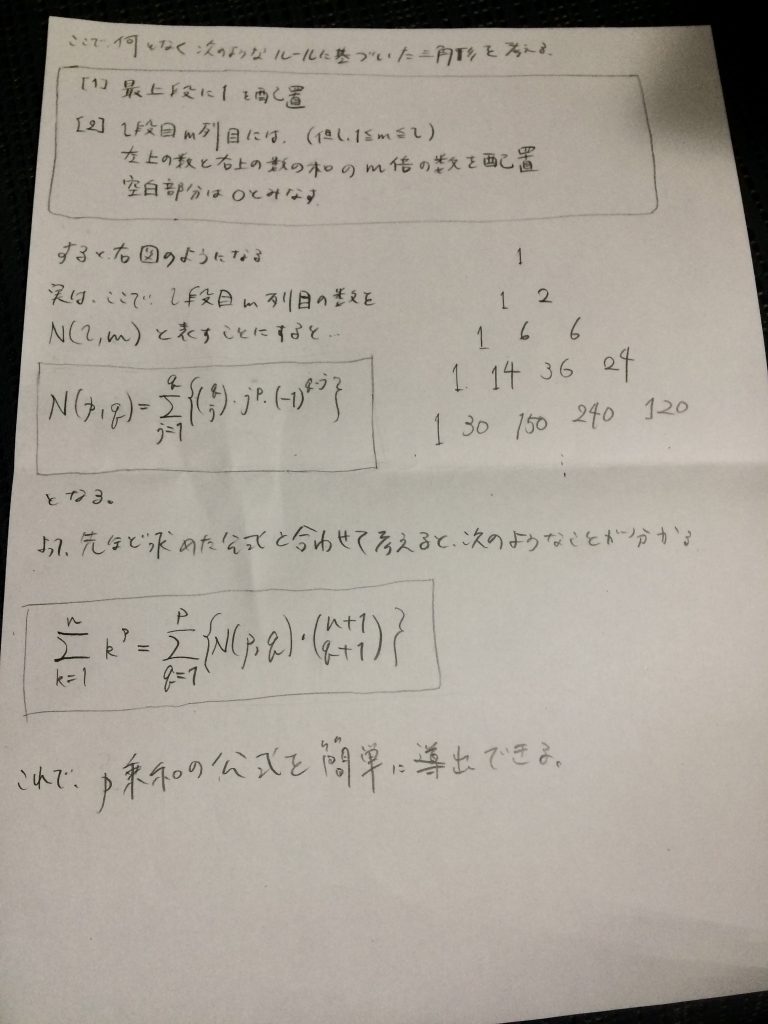 ここで、何となく次のようなルールに基づいた三角形を考える.
[1] 最上段に1を配置
[2] l段目m列目には、(但し、1≦m≦l)
左上の数と右上の数の和のm倍の数を配置
空白部分は0とみなす
すると、右図のようになる
実は、ここで、l段目m列目の数を
N(l,m)と表すことにすると…
N(p,q)=∑_{j=1}^{q}{(q j)・j^p・(-1)^{q-j}}
となる。
1
1 2
1 6 6
1 14 36 24
1 30 150 240 120
⋮
よって、先ほど求めた公式と合わせて考えると、次のようなことが分かる
∑_{k=1}^{n} k^p = ∑_{q=1}^{p}{N(p,q)・(n+1 q+1)}
これで、p乗和の公式を簡単に導出できる。